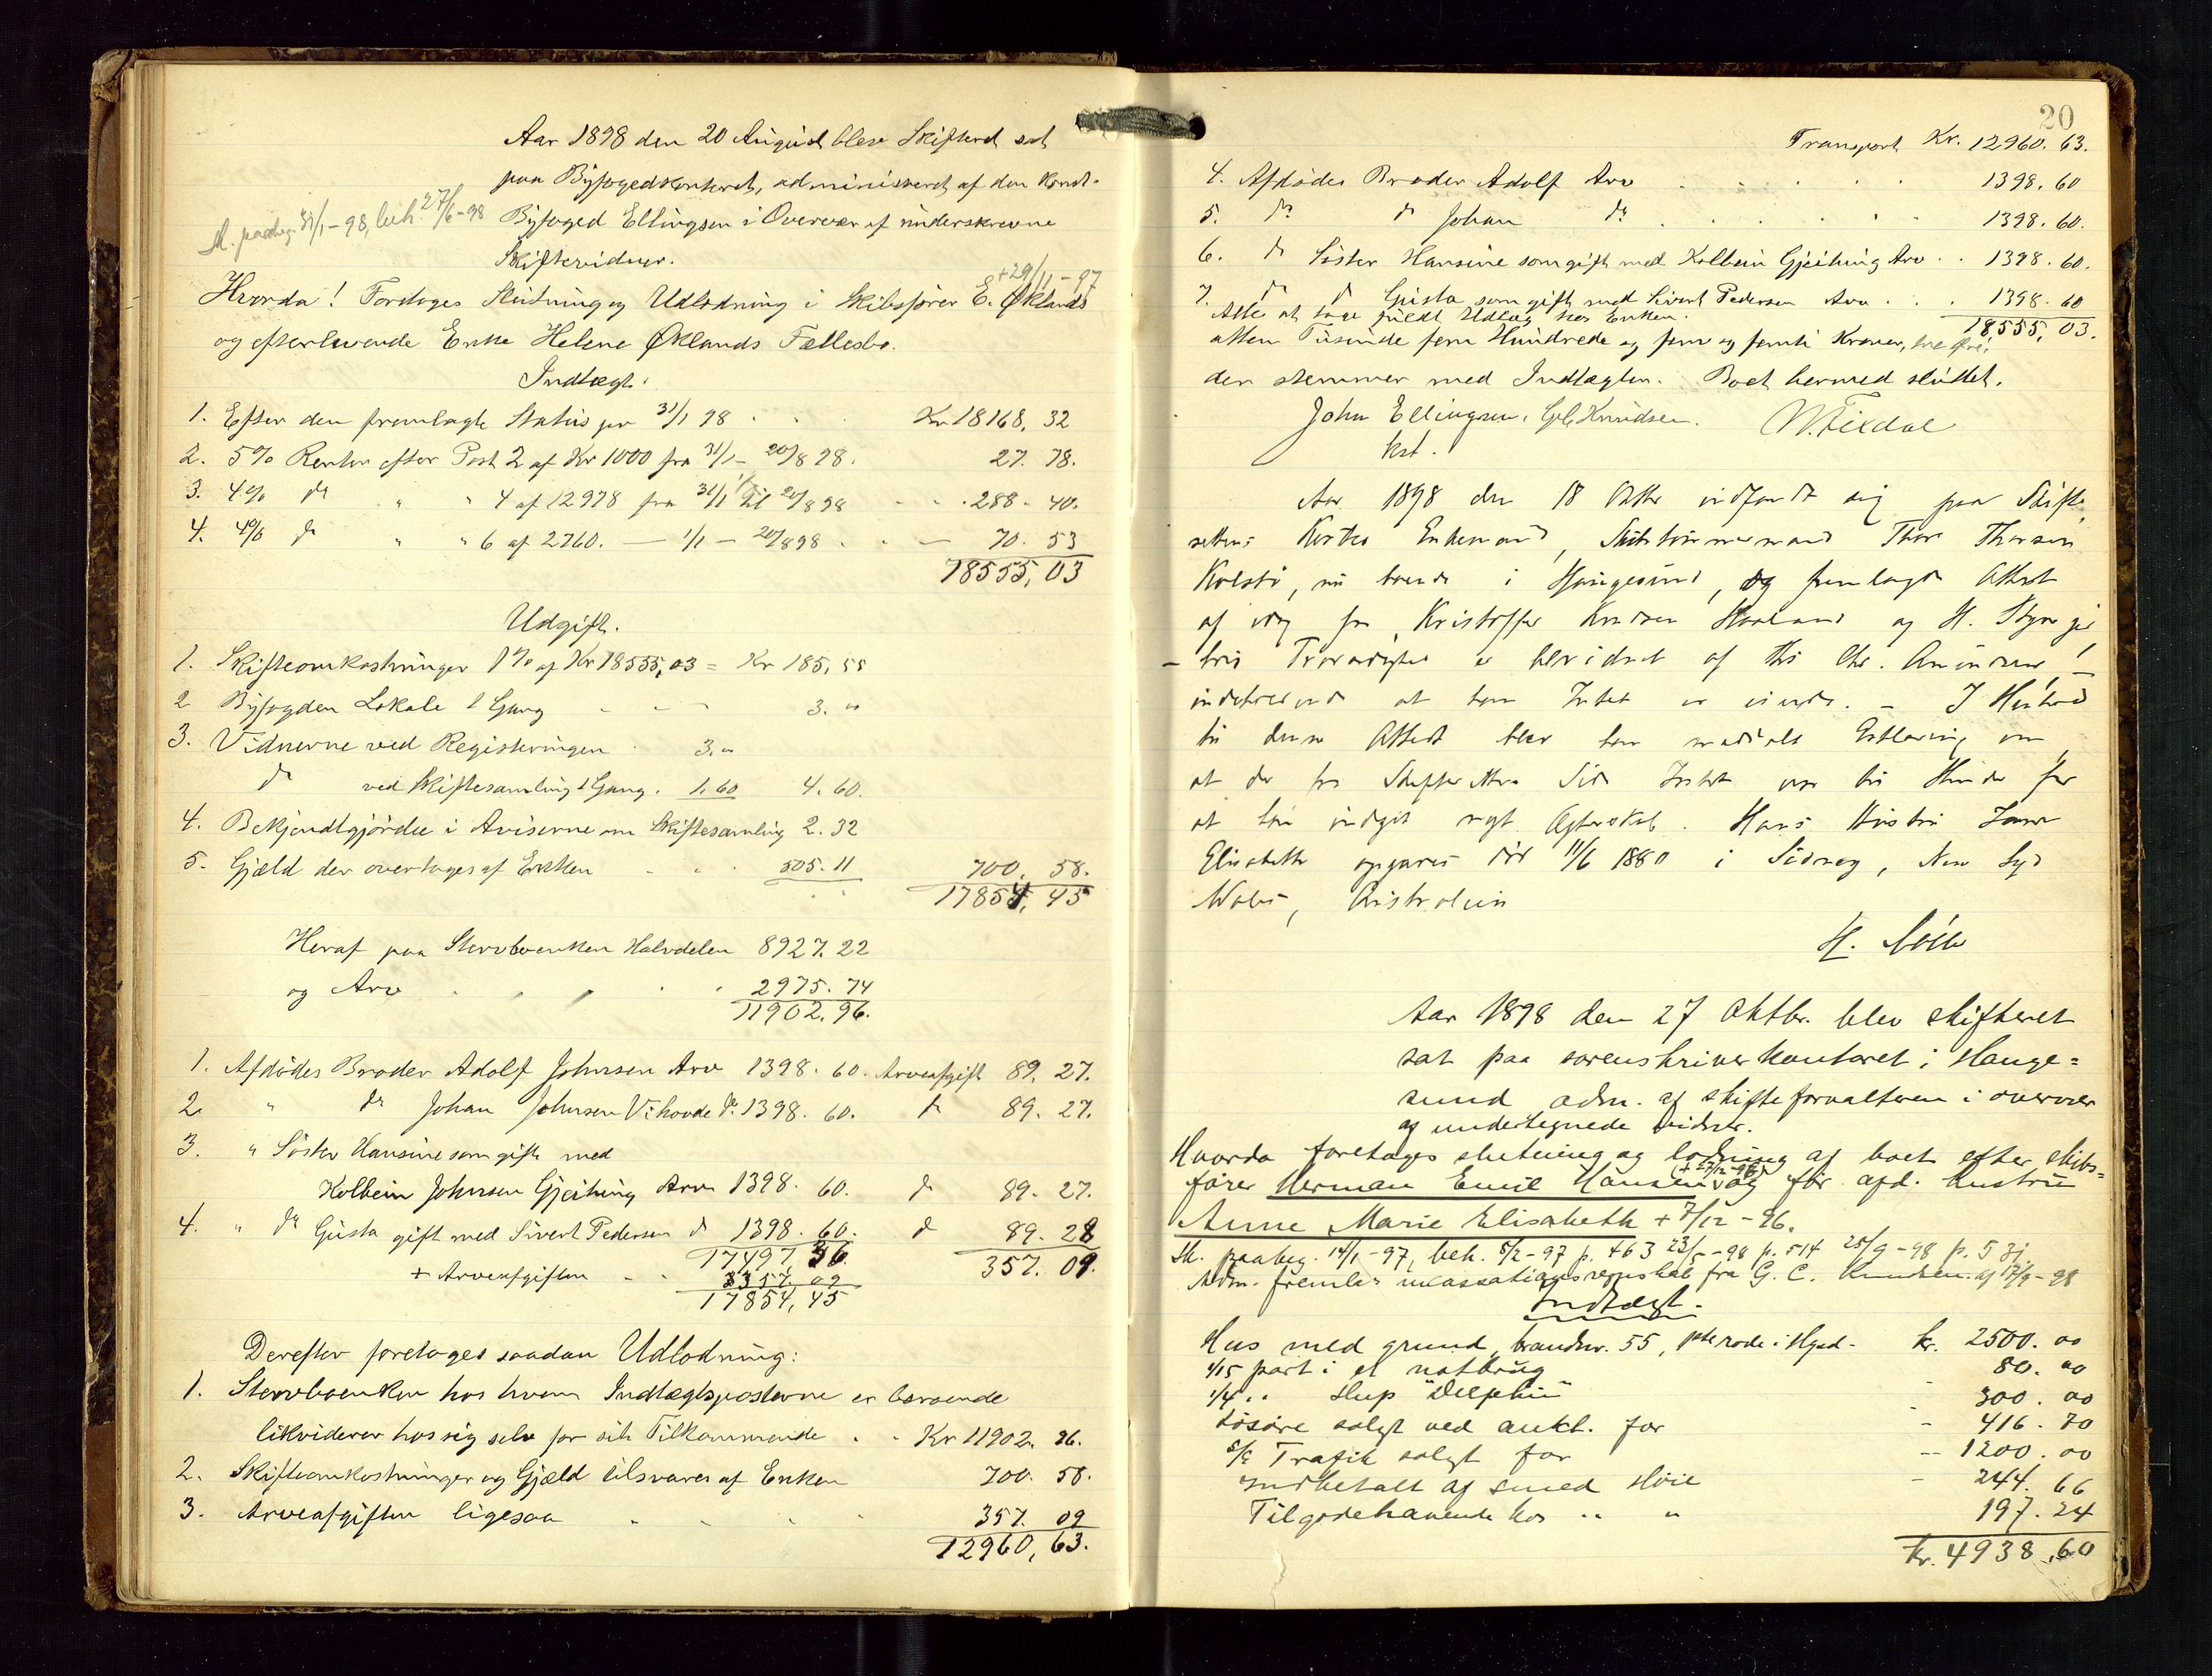 Aar 1898 den 20 August blev Skifteret sat
paa Byfogedkontoret, administreret af den konst.
Byfoged Ellingsen i Overvær af underskrevne
Skiftevidner.
31/1-98, beh. 27/6-98
+29/11-97
Hvorda! Foretoges Slutning og Udlodning i Skibsfører E. Øklands
og efterlevende Enke Helene Øklands Fællesbo.
Indtægt.
1. Efter den fremlagte Status pr 31/1 98 Kr 18168, 32
2. 5% Renter efter Post 2 af Kr 1000 fra 31/1 - 20/8 98. 27. 78.
3. 4% do " " 4 af 12978 fra 31/1 til 20/8 98 288. 40.
4. 4% do " " 6 af 2760. — 1/1 — 20/8 98 70. 53
18555, 03
Udgift.
1. Skifteomkostninger 1% af Kr 18555,03 = Kr 185, 55
2 Byfogden Lokale 1 Gang 3. "
3. Vidnerne ved Registreringen 3. "
do ved Skiftesamling 1 Gang. 1.60 4. 60.
4. Bekjendtgjørelse i Aviserne om Skiftesamling 2. 32
5. Gjæld der overtages af Enken 505. 11 700. 58.
17854, 45
Heraf paa Stervboenken Halvdelen 8927. 22
og Arv 2975. 74
11902. 96.
1. Afdødes Broder Adolf Johnsen Arv 1398. 60. Arveafgift 89. 27.
2. " do Johan Johnsen Vihovde do. 1398. 60. do 89. 27.
3. " Søster Hansine som gift med
Kolbein Johnsen Gjeiting Arv 1398. 60. do 89. 27.
4. " do Gusta gift med Sivert Pedersen do 1398. 60. do 89. 28
17497, 36. 357. 09.
+ Arveafgiften 357. 09
17854, 45
Derefter foretoges saadan Udlodning:
1. Stervboenken hos hvem Indtægtsposterne er beroende
likviderer hos sig selv for sit Tilkommende Kr 11902. 96.
2. Skifteomkostninger og Gjæld tilsvares af Enken 700. 58.
3. Arveafgiften ligesaa 357. 09
12960, 63.
20
Transport Kr. 12960. 63.
4. Afdødes Broder Adolf Arv 1398. 60
5. do do Johan do 1398. 60.
6. do Søster Hansine som gift med Kolbein Gjeiting Arv 1398. 60.
7. do do Gusta som gift med Sivert Pedersen Arv 1398. 60
Alle at tage fuldt Udlæg hos Enken. 18555, 03.
atten Tusinde fem Hundrede og fem og femti Kroner, tre Øre,
der stemmer med Indtægten. Boet hermed sluttet.
John Ellingsen. Knudsen.
kst.
Aar 1898 den 18 Oktbr indfandt sig paa Skifte
rettens Kontor Enkemand, Skibstømmermand Thore Thorsen
Kolstø, nu boende i Haugesund, og fremlagde Attest
af idag fra Kristoffer Knudsen Haaland og H.
- hvis Troværdighed er bevidnet af Chr. Amundsen -
indeholdende at han Intet er eiende. - I Henhold
til denne Attest blev ham meddelt Erklæring om
at der fra Skifterettens Side Intet var til Hinder for
at han indgik nyt Ægteskab. Hans Hustru
Elisabeth opgaves død 11/6 1880 i Sidney, New Syd
Wales, Australien
H.
Aar 1898 den 27 Oktbr. blev skifteret
sat paa sorenskriverkontoret i Hauge=
sund adm. af skifteforvalteren i overvær
af undertegnede vidner.
Hvorda foretoges slutning og lodning af boet efter skibs=
fører Herman Emil Hansen (+ 27/12-96) og før afd. hustru
Anne Marie Elisabeth + 7/12 - 96.
Sk. paabeg. 14/1-97, beh. 5/2-97 p. 463 23/5-98 p. 514 25/9-98 p. 5
Adm. fremla incassationsregnskab fra G. C. Knudsen af 17/9-98
Indtægt.
Hus med grund, brandnr. 55, rode i Hgsd. kr. 2500. 00
1/15 part i et notbrug 80. 00
1/4 " " slup "Delphin" 300. 00
Løsøre solgt ved aukt. for 416. 70
Trafik solgt for 1200. 00
Indbetalt af smed Høie 244. 66
Tilgodehavende hos " " 197. 24
kr. 4938. 60